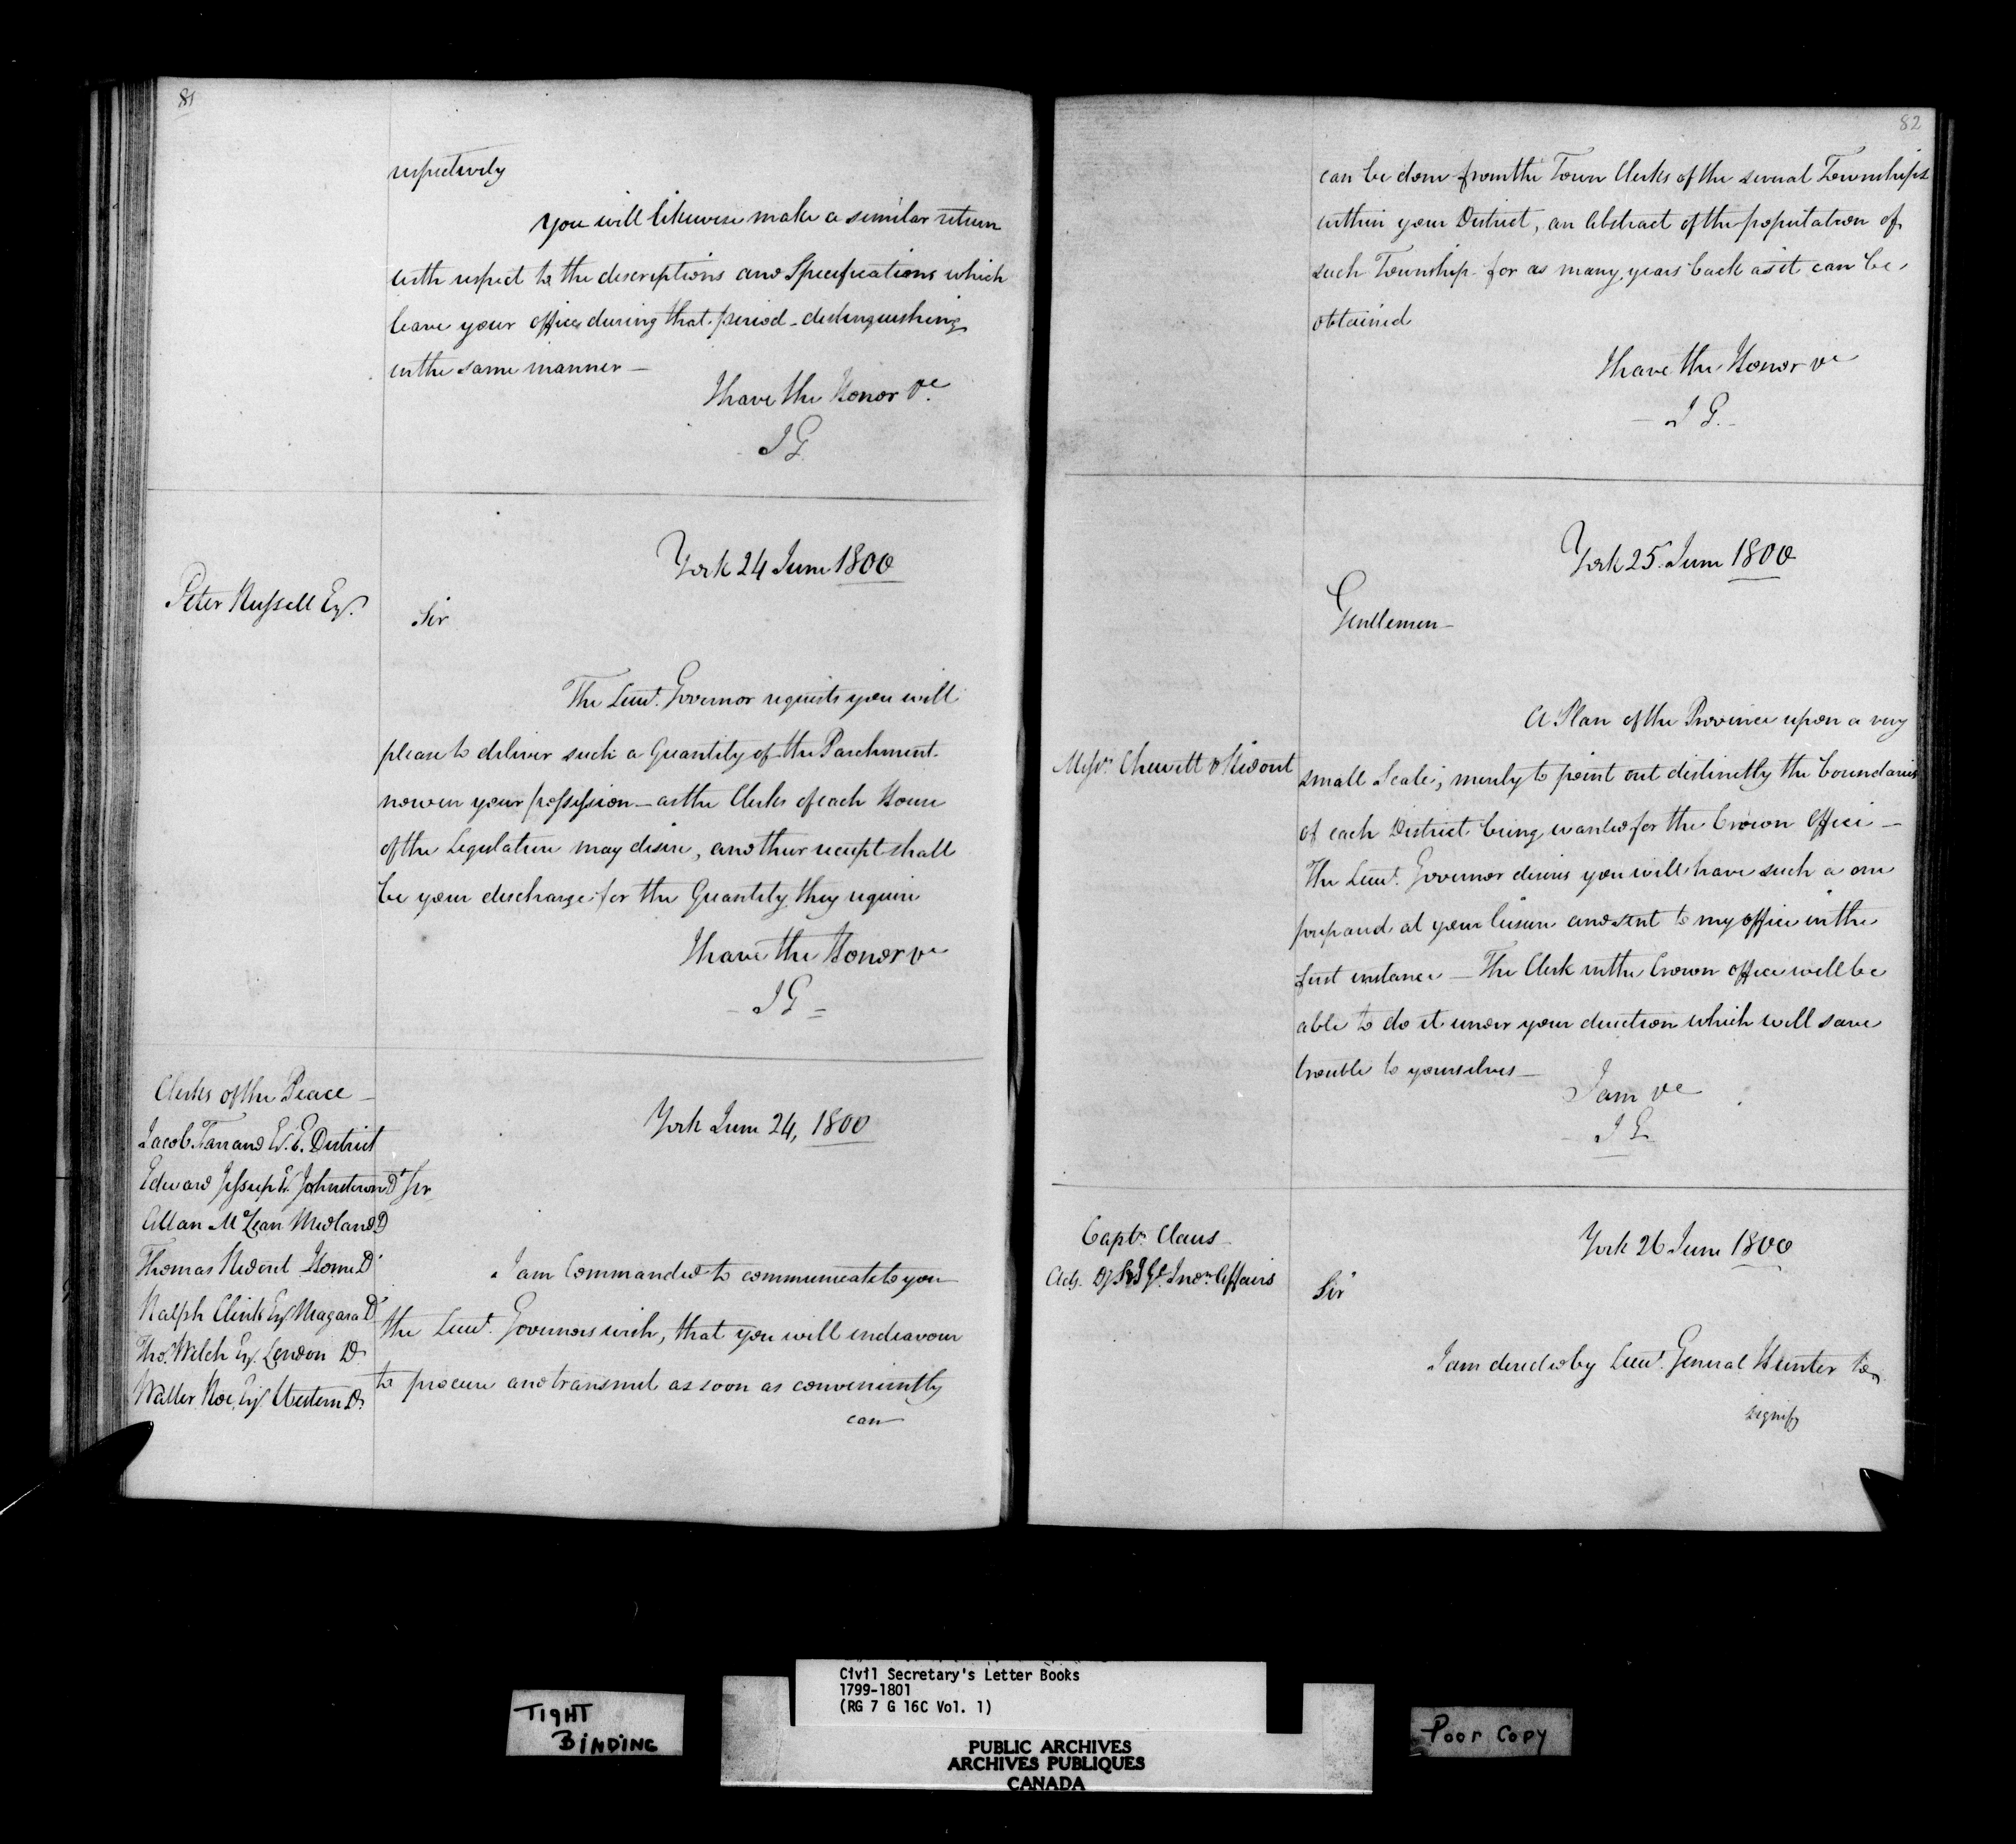 81
respectively
You will likewise make a similar return
with respect to the descriptions and Specifications which
leave your office during that period - distinguishing
in the same manner -
I have the Honor &c.
J G
York 24 June 1800
Peter Russell Esq.
Sir
The Lieut. Governor requests you will
please to deliver such a Quantity of the Parchment
now in your possession - as the Clerks of each House
of the Legislature may desire, and their receipt shall
be your discharge for the Quantity they require
I have the Honor &c
- J G =
Clerks of the Peace -
Jacob Farrand E. E. District
Edward Jessup E. Johnstown D
Allan McLean Midland D
Thomas Ridout Home D
Ralph Clink Esq Niagara D
Thos. Welch Esq. London D.
Walter Roe, Esq. Western D.
York June 24, 1800
Sir
I am Commanded to communicate to you
the Lieut. Governors wish, that you will endeavour
to procure and transmit as soon as conveniently
can
82
can be done from the Town Clerks of the several Townships
within your District, an Abstract of the population of
such Township for as many years back as it can be
obtained
I have the Honor &c
- J G. -
York 25 June 1800
Gentlemen -
Messrs. Chewett & Ridout
A Plan of the Province upon a very
small Scale; merely to point out distinctly the boundaries
of each District being wanted for the Crown Office -
The Lieut. Governor desires you will have such a one
prepared at your leisure and sent to my office in the
first instance - The Clerk in the Crown office will be
able to do it under your direction which will save
trouble to yourselves -
I am &c
J G
Captn. Claus -
Actg. D. S. I. Gl. Indn. Affairs
York 26 June 1800
Sir
I am directed by Lieut. General Hunter to
signify
TIGHT
BINDING
Civil Secretary's Letter Books
1799-1801
(RG 7 G 16C Vol. 1)
PUBLIC ARCHIVES
ARCHIVES PUBLIQUES
CANADA
Poor Copy